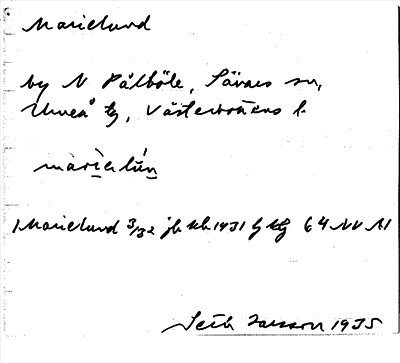 Marielund
by N Pålböle, Sävars sn,
Umeå tg, Västerbottens l.
màriɛlún
Marielund 3/32 jb kb 1931 64 NV A1
Seth Larsson 1935